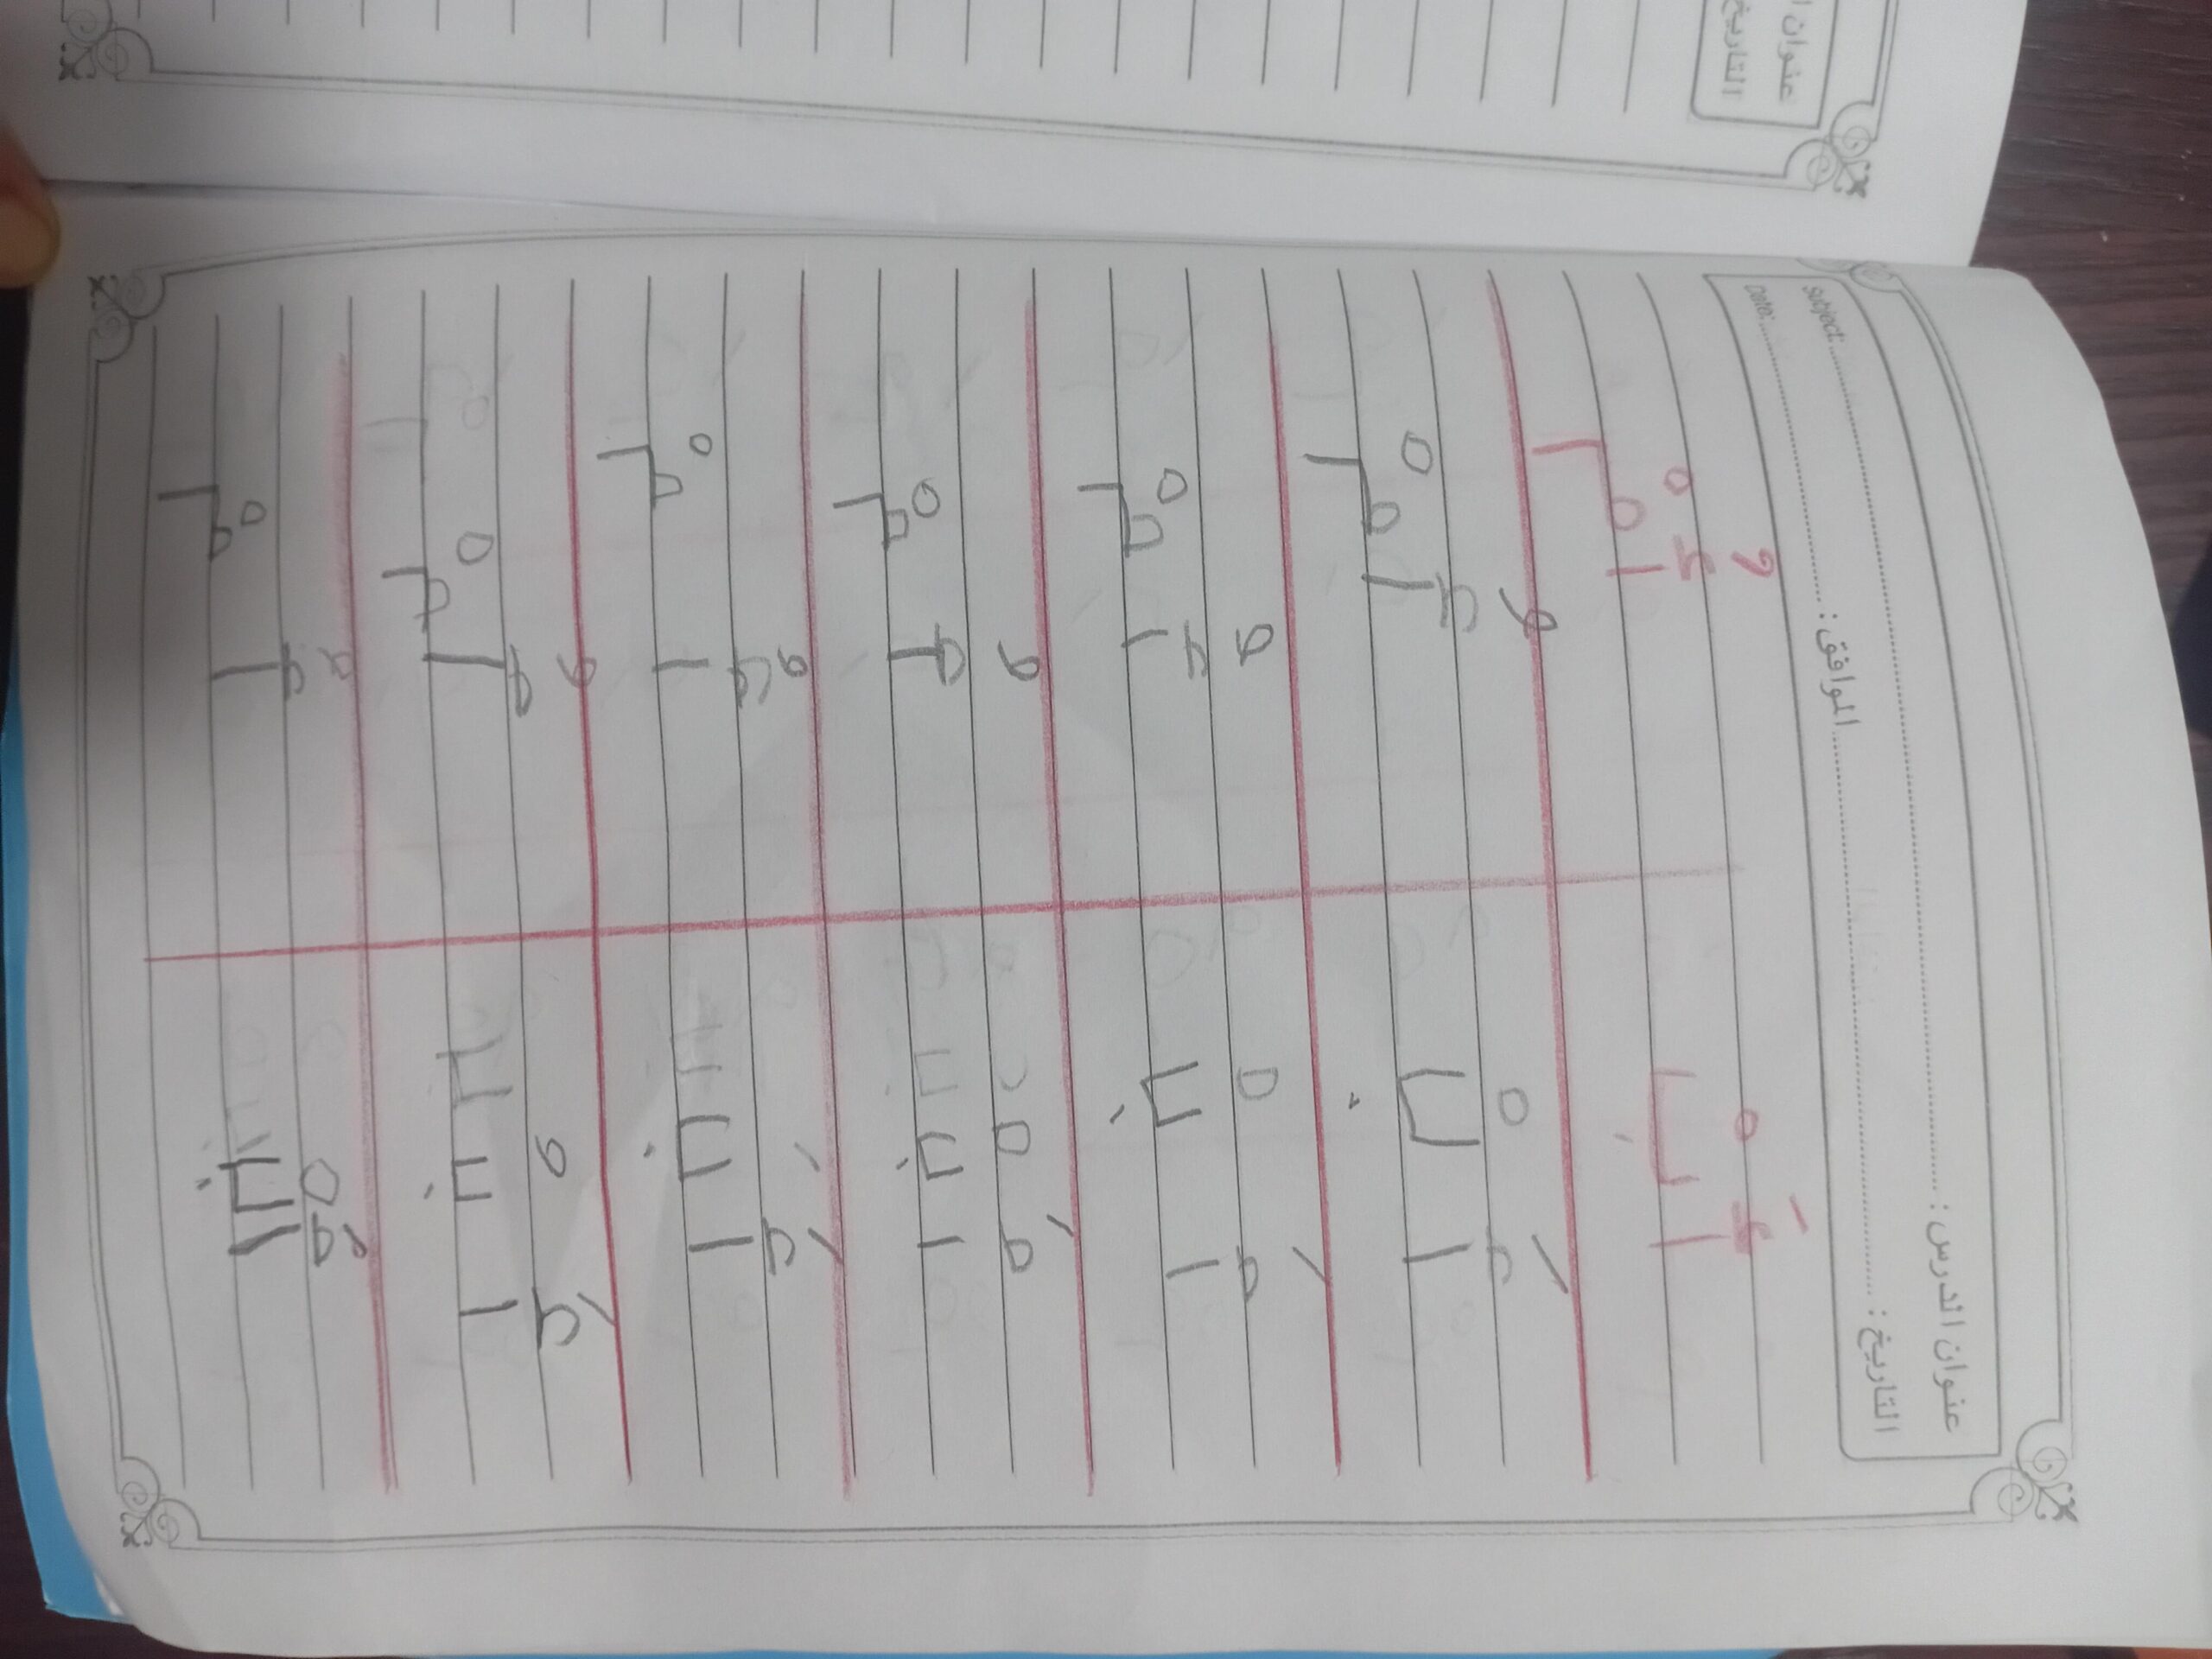 عنوان ا
التاريخ
عنوان الدرس : Subject:
التاريخ : الموافق : Date:
أَبْ أُمْ
أَبْ أُمْ
أَبْ أُمْ
أَبْ أُمْ
أَبْ أُمْ
أَبْ أُمْ
أَبْ أُمْ